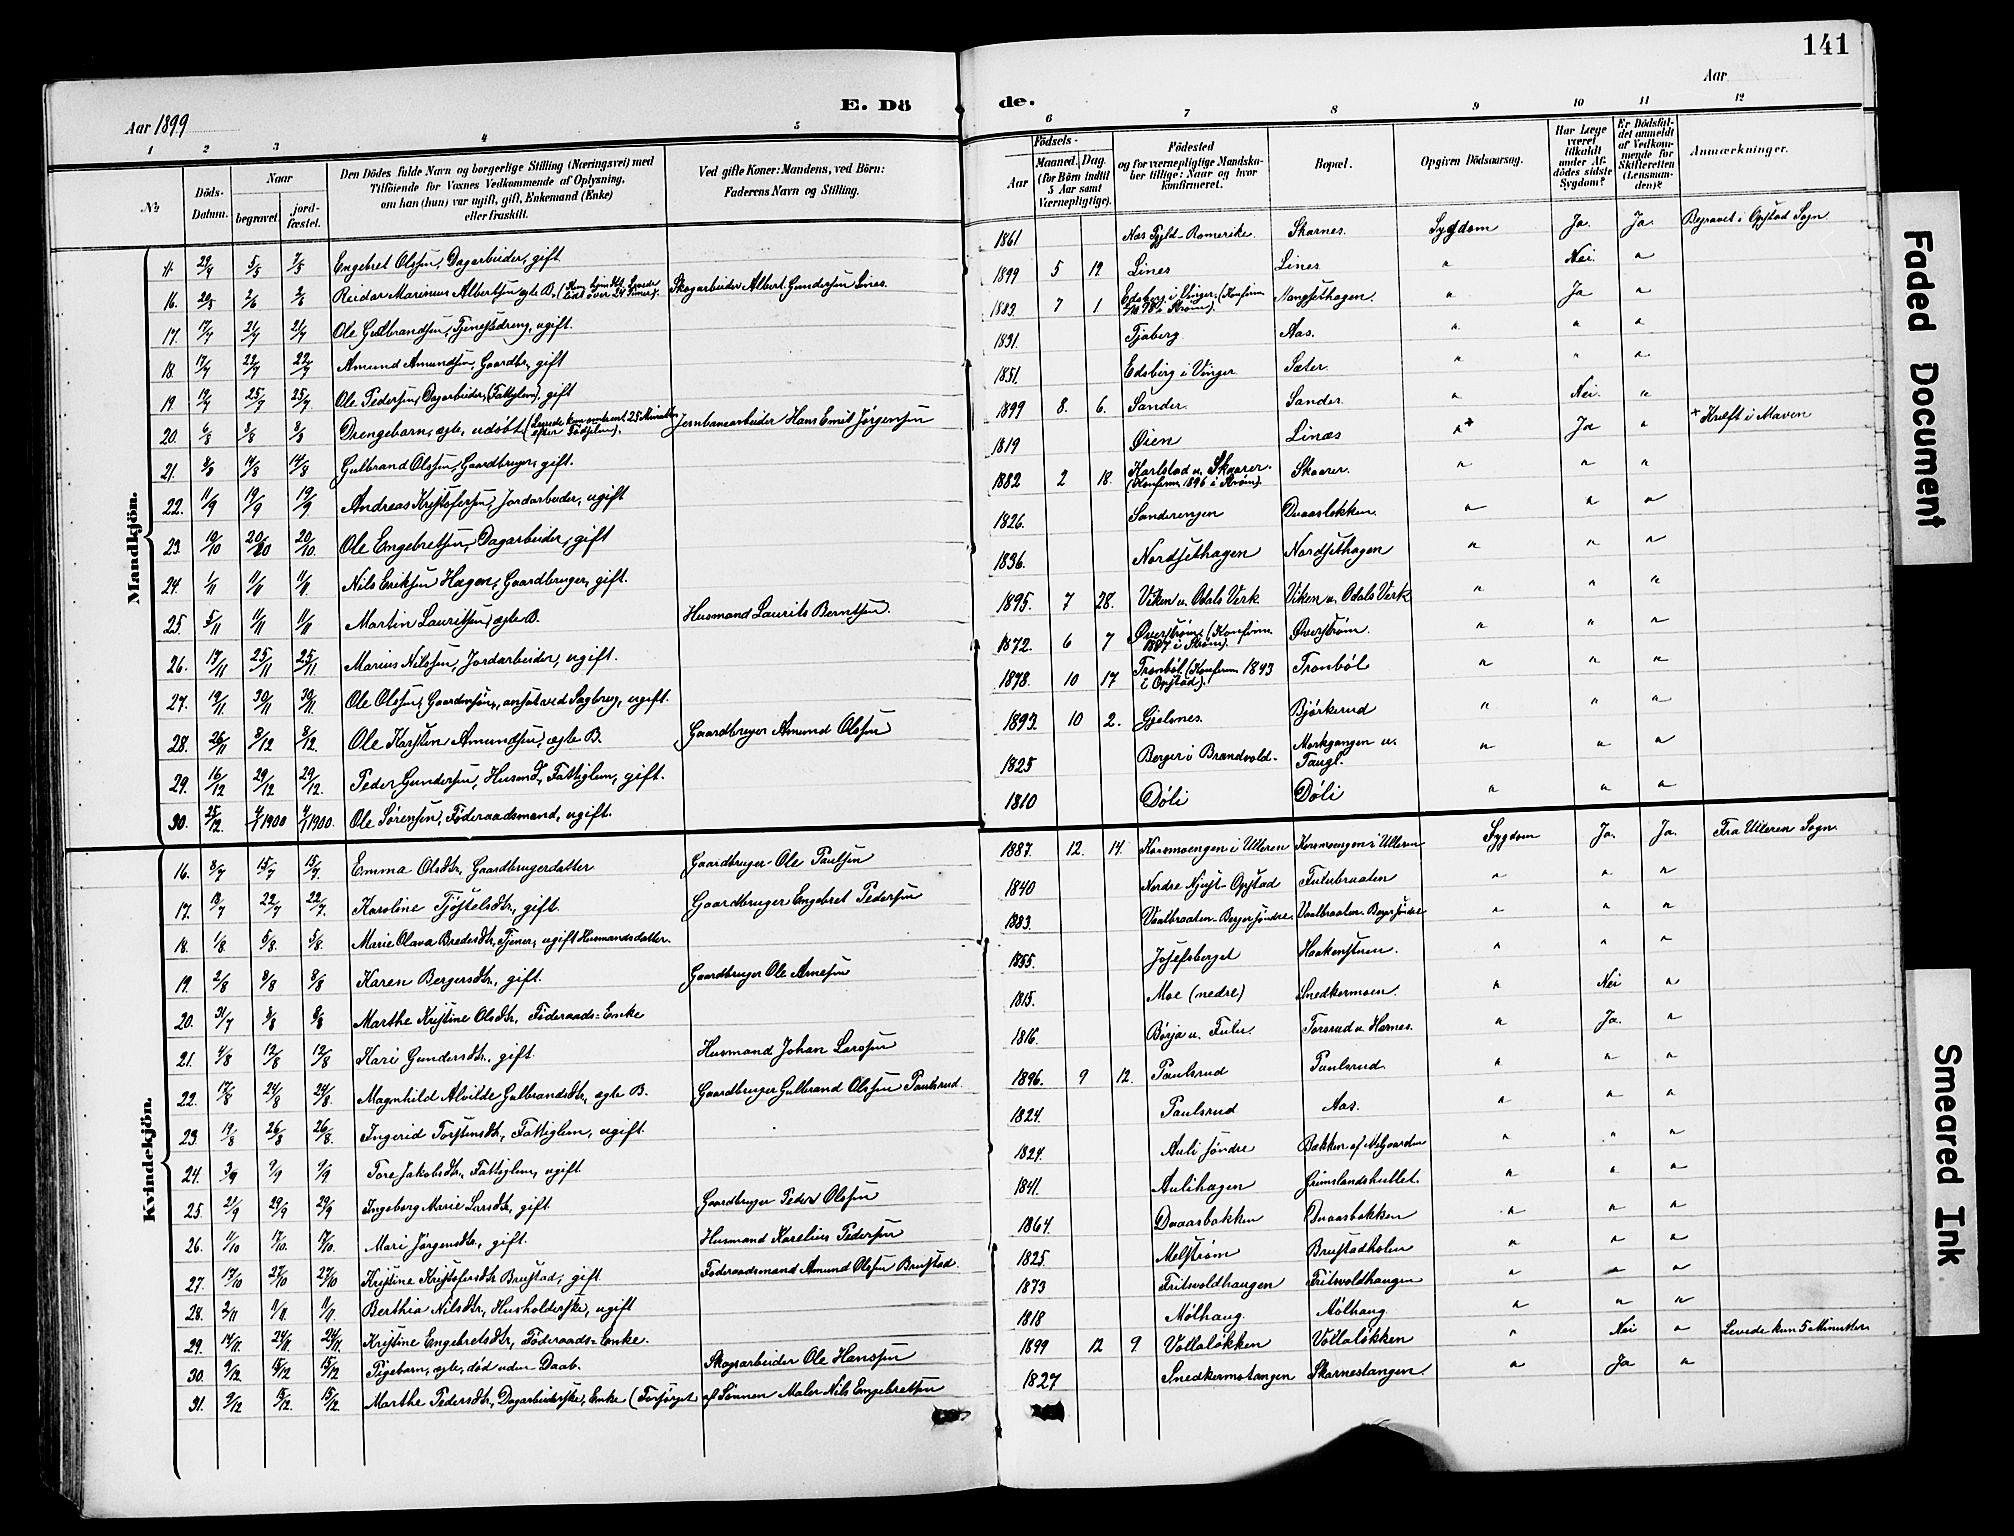 141
E. Dö de.
Aar 1899
Aar
1 2 3 4 5 6 7 8 9 10 11 12
No
Döds-Datum.
Naar
begravet
jord-fæstet.
Den Dödes fulde Navn og borgerlige Stilling (Næringsvei) med
Tilföiende for Voxnes Vedkommende af Oplysning,
om han (hun) var ugift, gift, Enkemand (Enke)
eller fraskilt.
Ved gifte Koner: Mandens, ved Börn:
Faderens Navn og Stilling.
Födsels-
Aar
Maaned. Dag.
(for Börn indtil
5 Aar samt
Værnepligtige).
Födested
og for værnepligtige Mandska-
ber tillige: Naar og hvor
konfirmeret.
Bopæl.
Opgiven Dödsaarsag.
Har Læge
været
tilkaldt
under Af-
dödes sidste
Sygdom?
Er Dödsfal-
det anmeldt
af Vedkom-
mende for
Skifteretten
(Lensman-
den)?
Anmærkninger.
Mandkjön.
Engebret Olssen, Dagarbeider, gift 1861 Skarnes. Sygdom Ja. Ja. Begravet i Opstad Sogn
16. 2/6 2/6 Reidar Marinius Albertsen ægte B. Skogarbeider Albert Gundersen Lines. 1899 5 19 Lines Lines " Nei. "
17. 17/7 21/7 21/7 Ole Gulbrandsen, Tjenestedreng, ugift. 1883 7 1 Edsberg i Vinger. (Konfirm Strøm). " Ja "
18. 17/7 22/7 22/7 Amund Amundsen, Gaardbr., gift 1831. Tjaberg Aas. " " "
19. 19/7 25/7 25/7 Ole Pedersen, Dagarbeider, (Fattiglem), gift 1851. Edsberg i Vinger Sæter. " " "
20. 6/8 8/8 8/8 Drengebarn, ægte, udøbt (Levede kun omtrent 25 Minutter efter Fødselen). Jernbanearbeider Hans Emil Jørgensen 1899 8. 6. Sander. Sander " Nei. "
21. 8/8 14/8 14/8 Gulbrand Olssen, Gaardbruger, gift. 1819 Øien Linæs "+ Ja " + Kræft i Maven
22. 11/9 19/9 19/9 Andreas Kristofersen, Jordarbeider, ugift 1882 2 18. Karlstad u. Skaarer. (Konfirm. 1896 i Strøm). Skaarer. " " "
23. 19/10 20/10 20/10 Ole Engebretsen, Dagarbeider, gift 1826. Sanderengen Dvaasløkken. " " "
24. 1/11 11/11 11/11 Nils Eriksen Hagen, Gaardbruger, gift. 1836. Nordsethagen Nordsethagen " " "
25. 5/11 11/11 11/11 Martin Lauritsen, ægte B. Husmand Laurits Berntsen 1895. 7 28. Viken u. Odals Verk. Viken u. Odals Verk " " "
26. 17/11 25/11 25/11 Marius Nilssen, Jordarbeider, ugift. 1872. 6 7 Øverstrøm, (Konfirm. 1887 i Strøm). Øverstrøm. " " "
27. 19/11 30/11 30/11 Ole Olssen, Gaardmsøn, ansat ved Sagbrug, ugift. 1878. 10 17 Tronbøl (Konfirm 1893 i Opstad). Tronbøl " " "
28. 26/11 8/12 8/12. Ole Karsten Amundsen, ægte B. Gaardbruger Amund Olssen 1893. 10 2. Gjelmes. Bjørkerud " " "
29. 16/12 29/12 29/12. Peder Gundersen, Husmd, Fattiglem, gift. 1825 Berger i Brandvold. Morkgangen u. " " "
30. 25/12. 4/1 1900 4/1 1900. Ole Sørensen, Føderaadsmand, ugift. 1810 Døli Døli " " "
Kvindekjön.
16. 8/7 15/7 15/7. Emma Olsdtr, Gaardbrugerdatter Gaardbruger Ole Paulsen 1887. 12. 14. Korsmoengen i Ulleren Korsmoengen i Ulleren Sygdom Ja. Ja. Fra Ulleren Sogn.
17. 18/7 22/7 22/7. Karoline Tjøstelsdtr., gift. Gaardbruger Engebret Pedersen 1840 Opstad Fulubraaten " " "
18. 1/8 5/8. 5/8. Marie Olava Bredesdtr, Tjener, ugift Husmandsdatter. 1883. Vaalbraaten-Berger søndre. Vaalbraaten-Berger søndre " " "
19. 2/8 8/8 8/8 Karen Bergersdtr., gift. Gaardbruger Ole Arnesen 1855. Josefsberget Haakenstuen. " " "
20. 31/7 8/8 8/8 Marthe Kristine Olsdtr, Føderaads=Enke 1815. Moe (nedre) Snedkermoen. " Nei "
21. 4/8 12/8 12/8 Kari Gundersdtr., gift. Husmand Johan Larssen 1816. Børja u. Fulu. Torsrud u. Hernes. " Ja. "
22. 17/8 24/8 24/8. Magnhild Alvilde Gulbrandsdtr., ægte B. Gaardbruger Gulbrand Olssen Paulsrud. 1896. 9 12. Paulsrud Paulsrud. " " "
23. 19/8 26/8 26/8. Ingerid Torstensdtr, Fattiglem, ugift. 1824. Paulsrud Aas. " " "
24. 3/9 9/9 9/9 Tore Jakobsdtr., Fattiglem, ugift. 1824. Auli søndre Bakken af Nesgaarden " " "
25. 21/9 29/9 29/9 Ingeborg Marie Larsdtr, gift Gaardbruger Peder Olssen 1841. Aulihagen Grimslandshullet. " " "
26. 11/10 17/10. 17/10. Mari Jørgensdtr., gift. Husmand Karelius Pedersen 1864. Dvaasbakken Dvaasbakken " " "
27. 17/10 27/10 27/10 Kristine Kristofersdtr Brustad, gift Føderaadsmand Amund Olssen Brustad. 1825. Melstrøm Brustadholen " " "
28. 2/11 11/11. 11/11. Berthia Nilsdtr., Husholderske, ugift 1873 Fritsvoldhaugen Fritsvoldhaugen " " "
29. 14/11. 24/11. 24/11. Kristine Engebretsdtr, Føderaads=Enke. 1818 Mølhaug. Mølhaug. " " "
30. 9/12. 15/12 15/12 Pigebarn, ægte, død uden Daab. Skogsarbeider Ole Hanssen 1899 12 9. Vollaløkken Vollaløkken " Nei " Levede kun 5 Minutter
31. 9/12 15/12. 15/12. Marthe Pedersdtr, Dagarbeiderske, Enke (Forsørget af Sønnen Maler Nils Engebretsen 1827 Snedkermotangen Skarnestangen. " Ja "
Faded Document
Smeared Ink